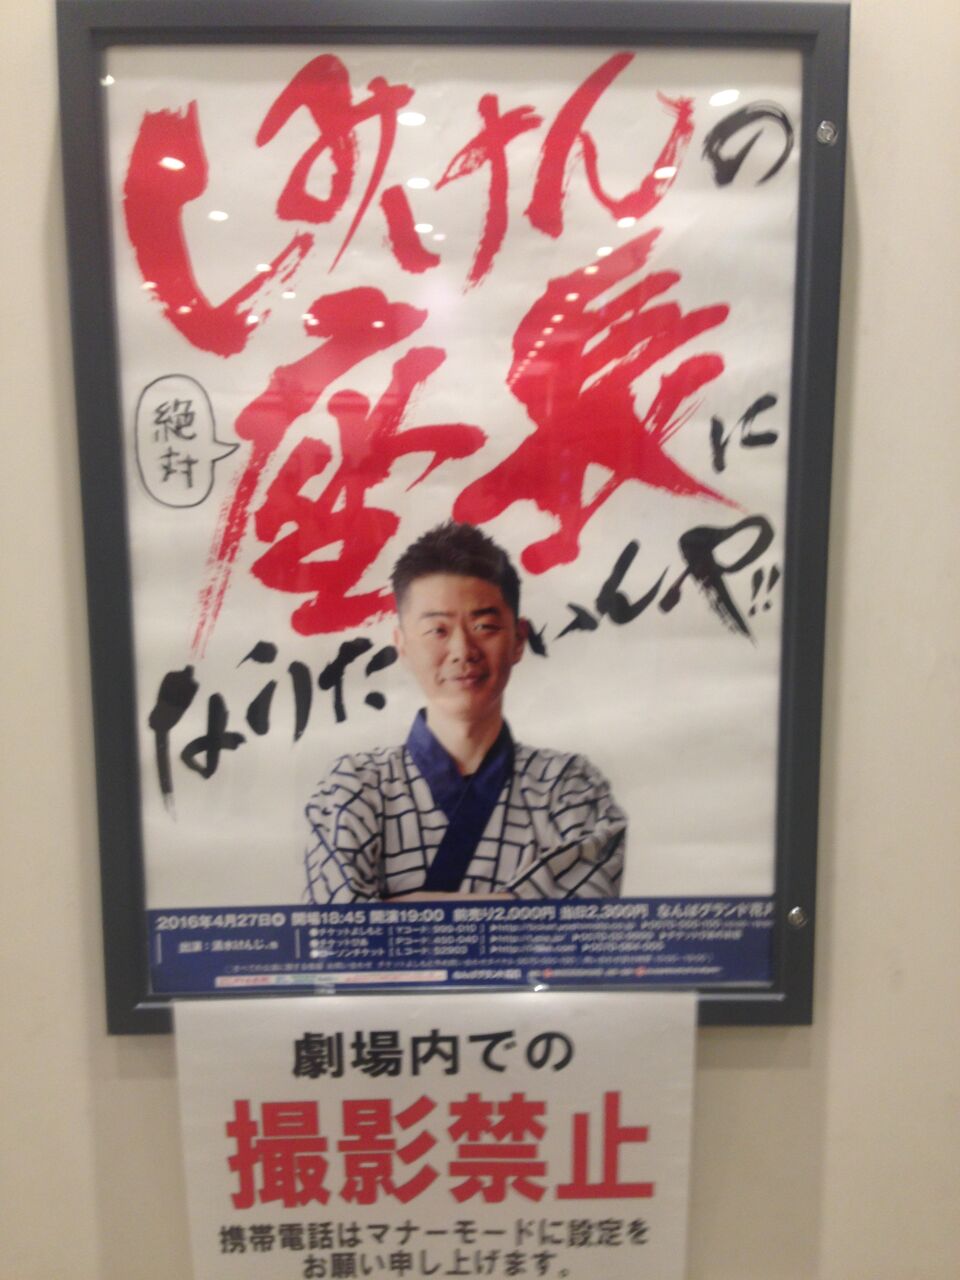 しみけんの
座長に
絶対
なりたいんや!!
2016年4月27日 開場18:45 開演19:00 前売り2,000円 当日2,300円 なんばグランド花月
出演:清水けんじ、他
●チケットよしもと
●チケットぴあ
●ローソンチケット
劇場内での
撮影禁止
携帯電話はマナーモードに設定を
お願い申し上げます。